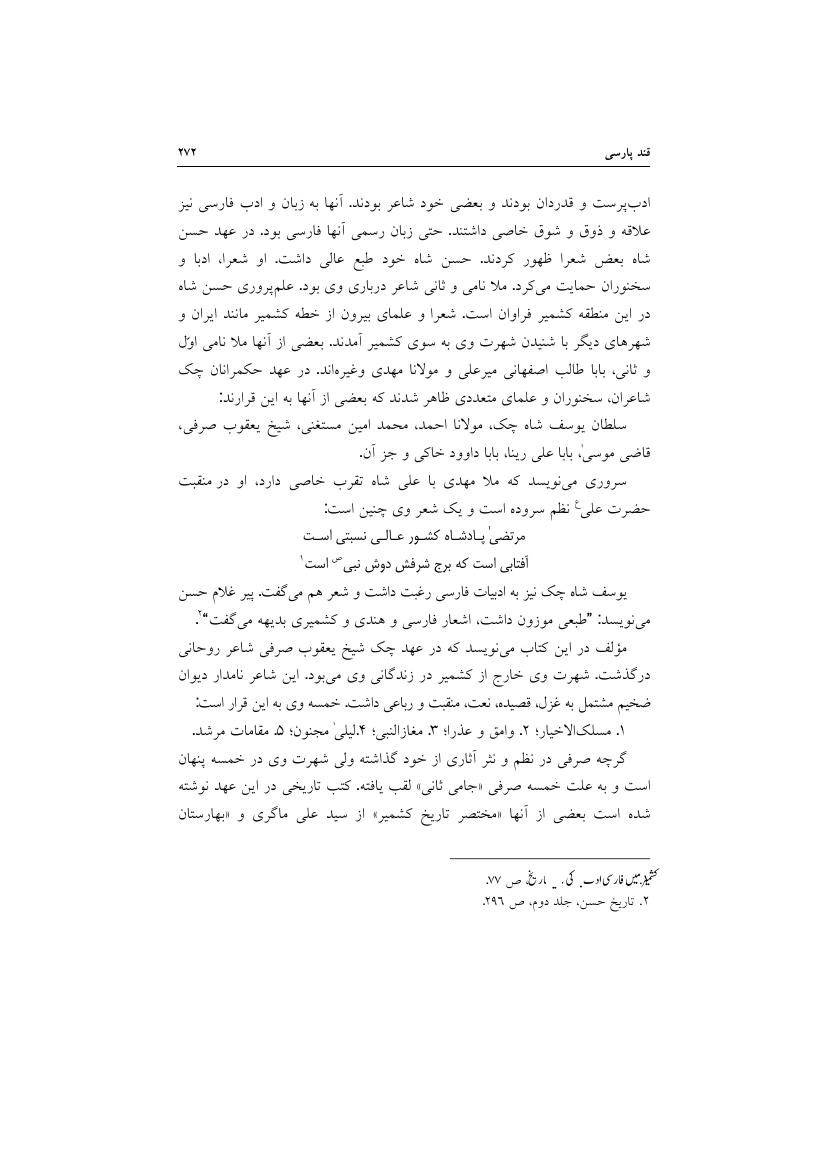 قند پارسی ۲۷۲
ادب‌پرست و قدردان بودند و بعضی خود شاعر بودند. آنها به زبان و ادب فارسی نیز
علاقه و ذوق و شوق خاصی داشتند. حتی زبان رسمی آنها فارسی بود. در عهد حسن
شاه بعض شعرا ظهور کردند. حسن شاه خود طبع عالی داشت. او شعرا، ادبا و
سخنوران حمایت می‌کرد. ملا نامی و ثانی شاعر درباری وی بود. علم‌پروری حسن شاه
در این منطقه کشمیر فراوان است. شعرا و علمای بیرون از خطه کشمیر مانند ایران و
شهرهای دیگر با شنیدن شهرت وی به سوی کشمیر آمدند. بعضی از آنها ملا نامی اوّل
و ثانی، بابا طالب اصفهانی میرعلی و مولانا مهدی وغیره‌اند. در عهد حکمرانان چک
شاعران، سخنوران و علمای متعددی ظاهر شدند که بعضی از آنها به این قرارند:
سلطان یوسف شاه چک، مولانا احمد، محمد امین مستغنی، شیخ یعقوب صرفی،
قاضی موسیٰ، بابا علی رینا، بابا داوود خاکی و جز آن.
سروری می‌نویسد که ملا مهدی با علی شاه تقرب خاصی دارد، او در منقبت
حضرت علیؑ نظم سروده است و یک شعر وی چنین است:
مرتضیٰ پـادشـاه کشـور عـالـی نسبتی اسـت
آفتابی است که برج شرفش دوش نبیؐ است۱
یوسف شاه چک نیز به ادبیات فارسی رغبت داشت و شعر هم می‌گفت. پیر غلام حسن
می‌نویسد: ”طبعی موزون داشت، اشعار فارسی و هندی و کشمیری بدیهه می‌گفت“۲.
مؤلف در این کتاب می‌نویسد که در عهد چک شیخ یعقوب صرفی شاعر روحانی
درگذشت. شهرت وی خارج از کشمیر در زندگانی وی می‌بود. این شاعر نامدار دیوان
ضخیم مشتمل به غزل، قصیده، نعت، منقبت و رباعی داشت. خمسه وی به این قرار است:
۱. مسلک‌الاخیار؛ ۲. وامق و عذرا؛ ۳. مغازالنبی؛ ۴.لیلیٰ مجنون؛ ۵. مقامات مرشد.
گرچه صرفی در نظم و نثر آثاری از خود گذاشته ولی شهرت وی در خمسه پنهان
است و به علت خمسه صرفی «جامی ثانی» لقب یافته. کتب تاریخی در این عهد نوشته
شده است بعضی از آنها «مختصر تاریخ کشمیر» از سید علی ماگری و «بهارستان
کشمیر میں فارسی ادب کی تاریخ، ص ۷۷.
۲. تاریخ حسن، جلد دوم، ص ۲۹۶.